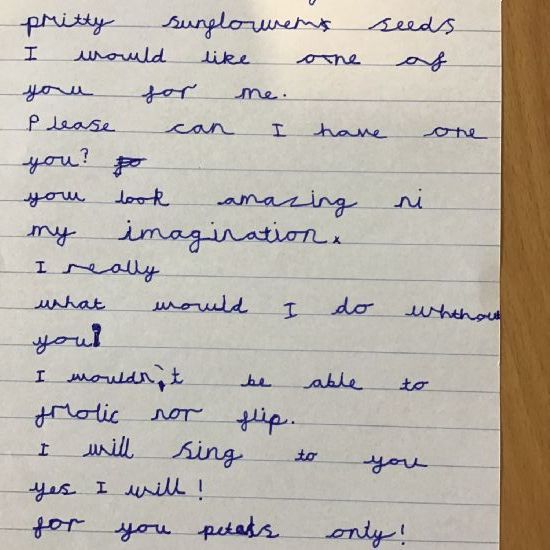 pritty sunflowers seeds
I would like one of
you for me.
Please can I have one
you?
you look amazing ni
my imagination.
I really
what would I do whthout
you!
I wouldn't be able to
frolic nor flip.
I will sing to you
yes I will!
for you petals only!